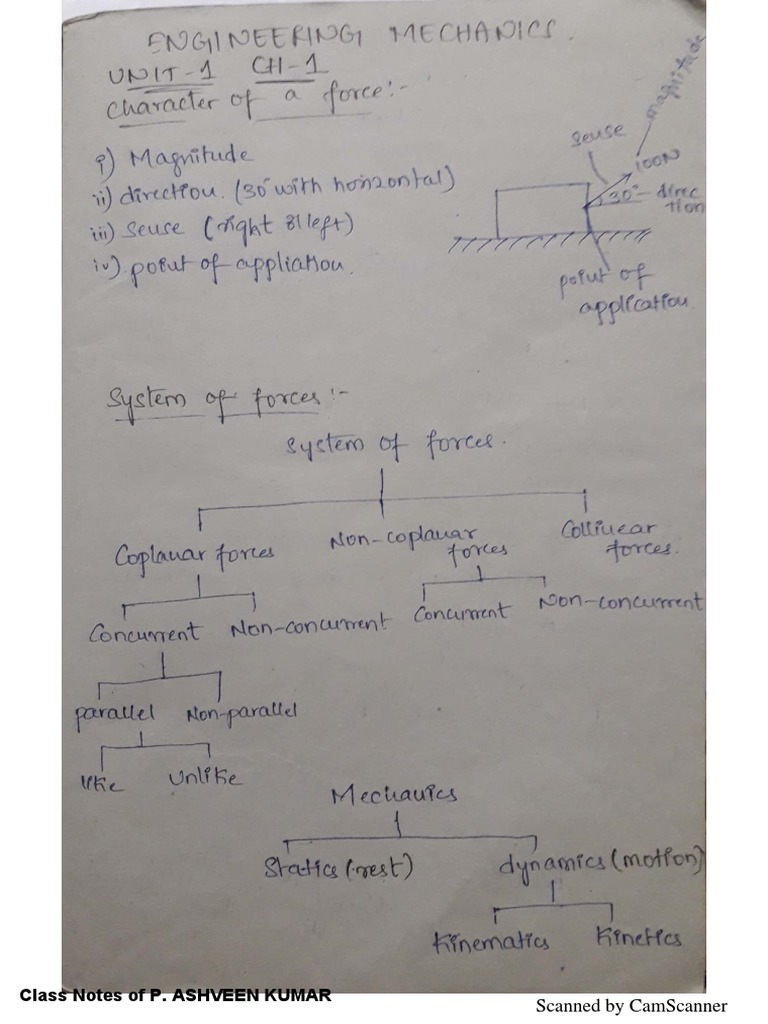 ENGINEERING MECHANICS.
UNIT-1 CH-1
Character of a force:-
i) Magnitude
ii) direction. (30° with horizontal)
iii) Sense (right or left)
iv) point of appliation.
magnitude
sense
100N
30° direc
tion
point of
application
System of forces:-
System of forces.
Coplanar forces
Non-coplanar
forces
Collinear
forces.
Concurrent Non-concurrent
Concurrent Non-concurrent
parallel Non-parallel
like Unlike
Mechanics
Statics (rest) dynamics (motion)
Kinematics Kinetics
Class Notes of P. ASHVEEN KUMAR
Scanned by CamScanner